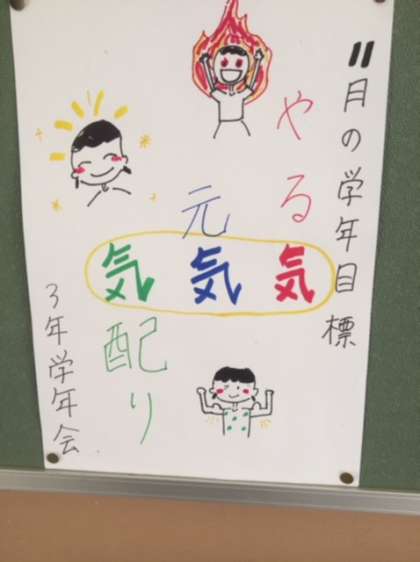 11月の学年目標
やる気
元気
気配り
3年学年会